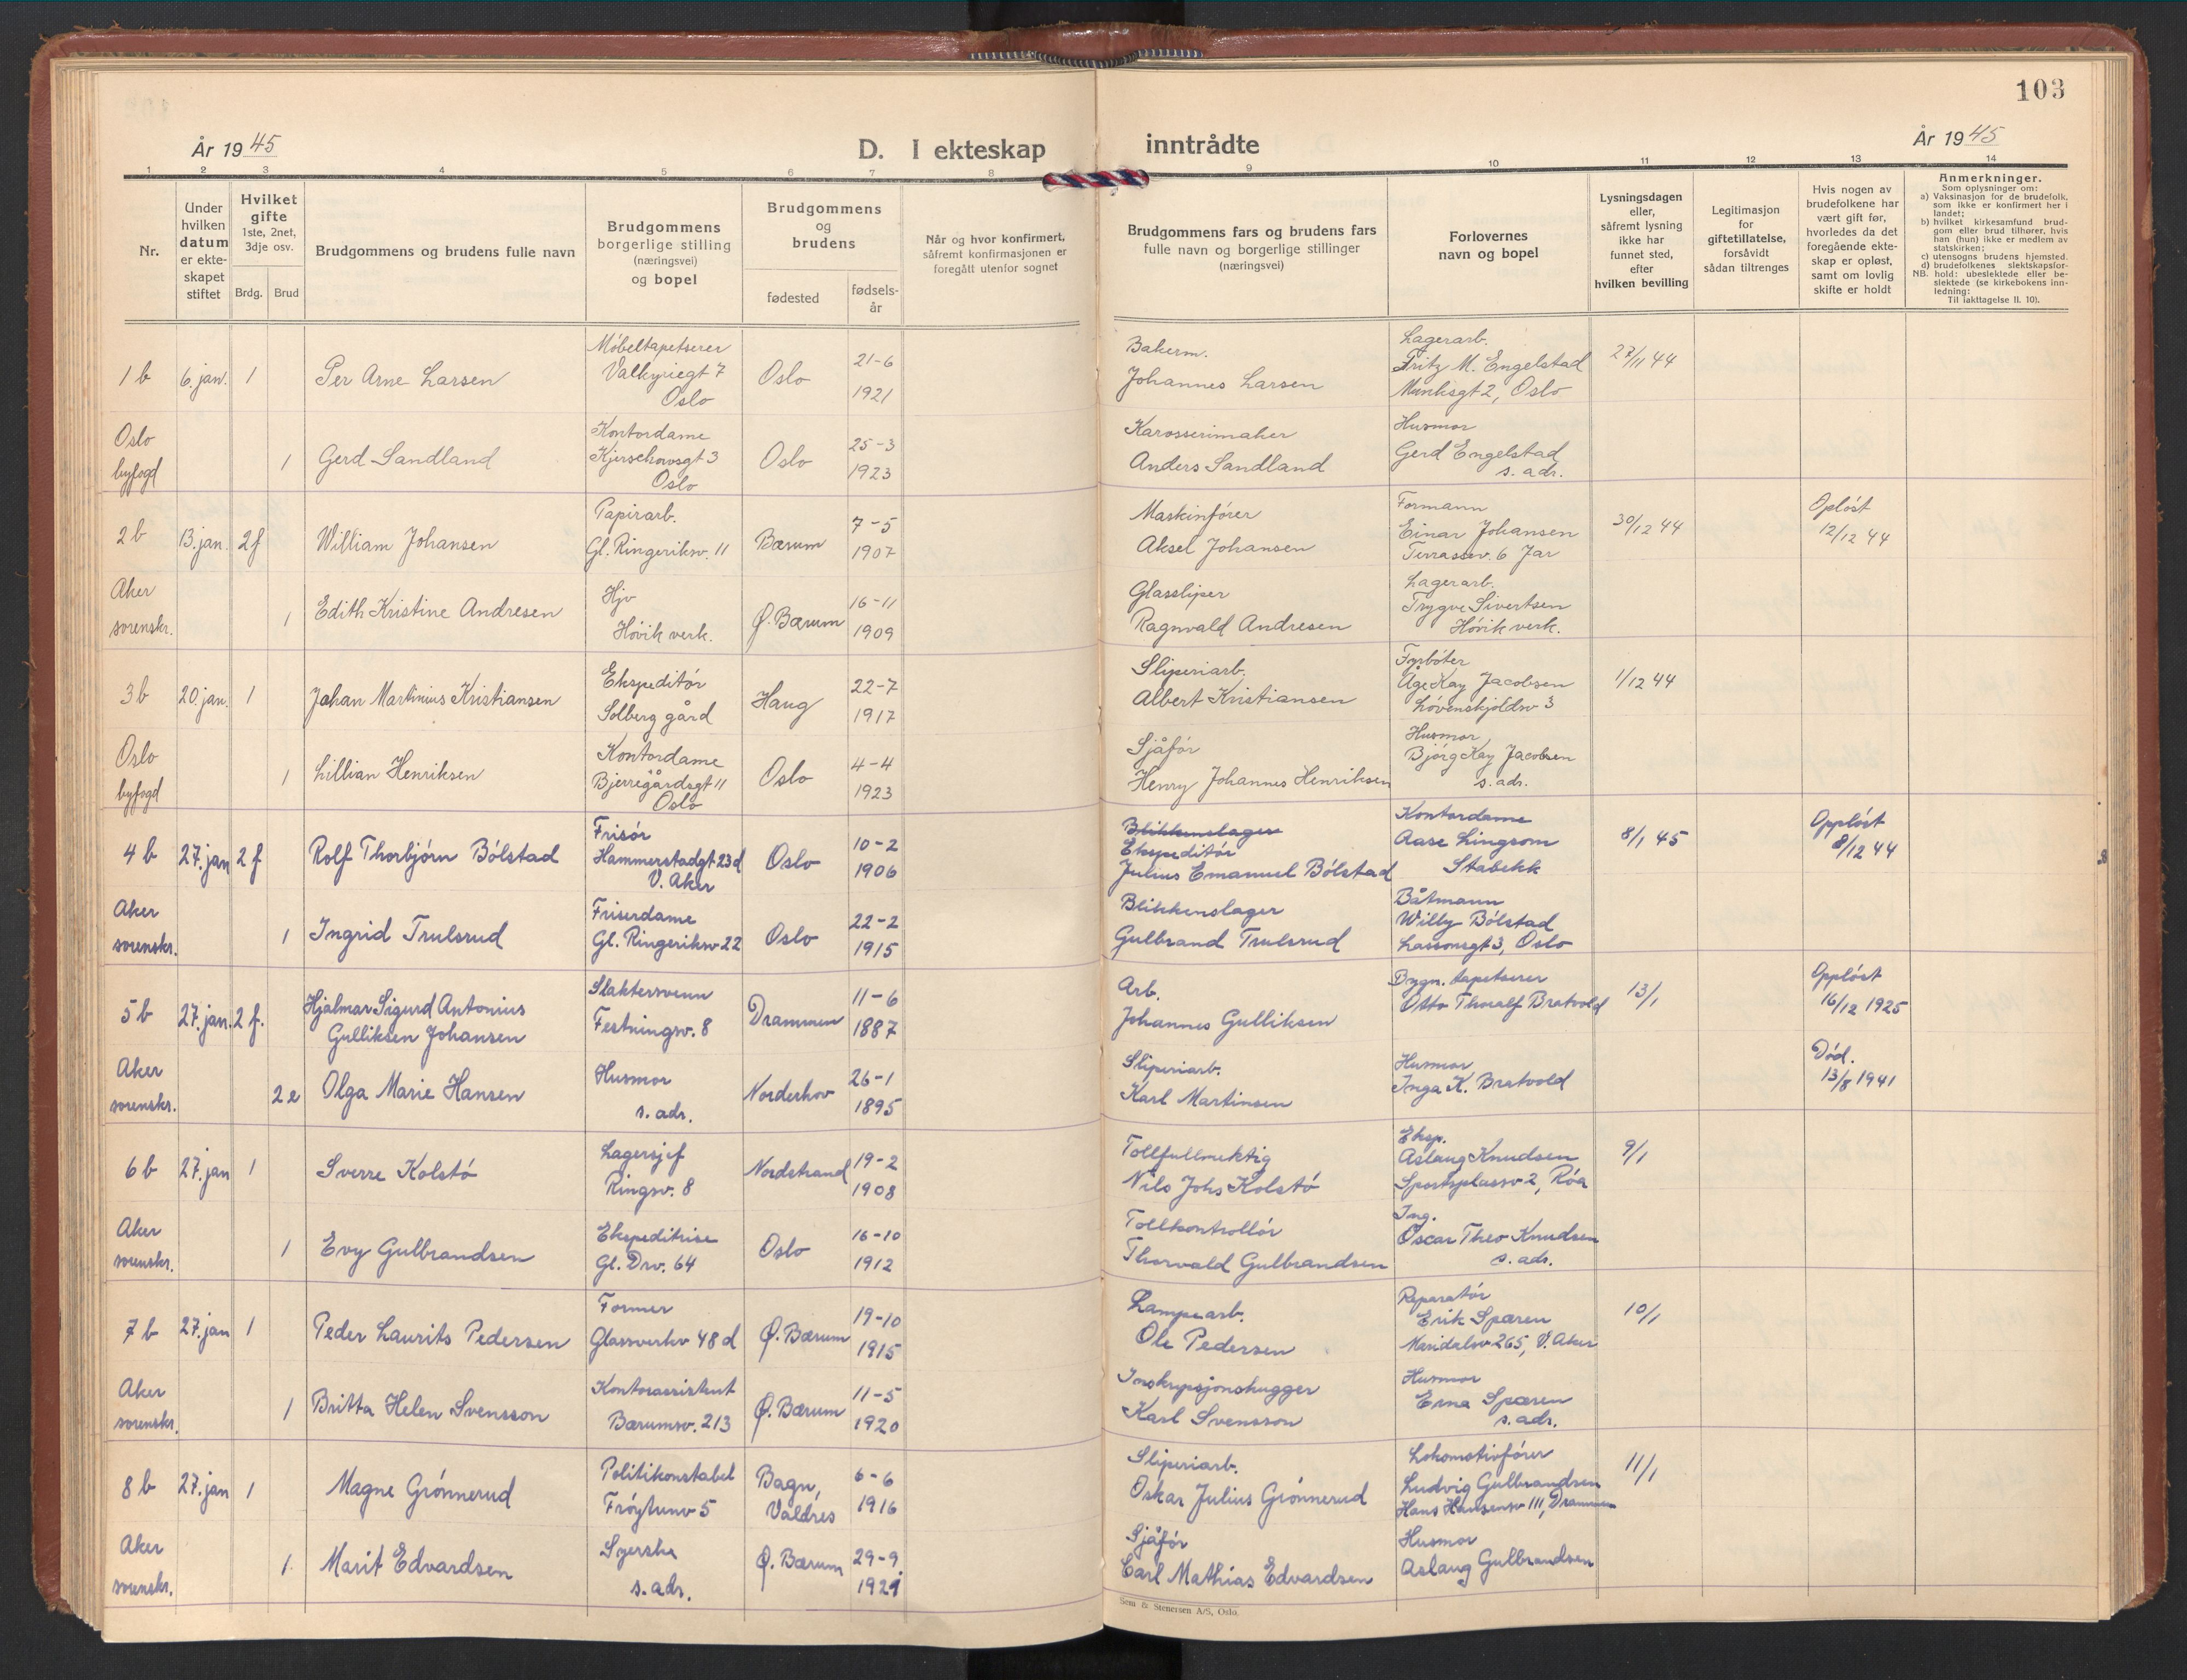 103
År 1945
D. I ekteskap
inntrådte
År 1945
1 2 3 4 5 6 7 8 9 10 11 12 13 14
Nr.
Under hvilken datum er ekteskapet stiftet
Hvilket gifte 1ste, 2net, 3dje osv.
Brdg. Brud
Brudgommens og brudens fulle navn
Brudgommens borgerlige stilling (næringsvei) og bopel
Brudgommens og brudens
fødested
fødselsår
Når og hvor konfirmert, såfremt konfirmasjonen er foregått utenfor sognet
Brudgommens fars og brudens fars fulle navn og borgerlige stillinger (næringsvei)
Forlovernes navn og bopel
Lysningsdagen eller, såfremt lysning ikke har funnet sted, efter hvilken bevilling
Legitimasjon for giftetillatelse, forsåvidt sådan tiltrenges
Hvis nogen av brudefolkene har vært gift før, hvorledes da det foregående ekteskap er opløst, samt om lovlig skifte er holdt
Anmerkninger.
Som oplysninger om:
a) Vaksinasjon for de brudefolk, som ikke er konfirmert her i landet;
b) hvilket kirkesamfund brudgom eller brud tilhører, hvis han (hun) ikke er medlem av statskirken;
c) utensogns brudens hjemsted.
d) brudefolkenes slektskapsforhold: ubeslektede eller beslektede (se kirkebokens innledning:
NB.
Til iakttagelse II. 10).
1 b 6. jan. 1 Per Arne Larsen Møbeltapetserer Valkyriegt 7 Oslo Oslo 21-6 1921 Bakerm. Johannes Larsen Lagerarb. Fritz M. Engelstad Munksgt 2, Oslo 27/11 44
Oslo byfogd 1 Gerd Sandland Kontordame Kjerschowsgt 3 Oslo Oslo 25-3 1923 Karosserimaker Anders Sandland Husmor Gerd Engelstad s. adr.
2 b 13. jan. 2 f William Johansen Papirarb. Gl. Ringeriksv. 11 Bærum 7-5 1907 Maskinfører Aksel Johansen Formann Einar Johansen Terrassev. 6 Jar 30/12 44 Opløst 12/12 44
Aker sorenskr. 1 Edith Kristine Andresen Hjv Høvik verk. Ø. Bærum 16-11 1909 Glassliper Ragnvald Andresen Lagerarb. Trygve Sivertsen Høvik verk.
3 b 20. jan. 1 Johan Martinius Kristiansen Ekspeditør Solberg gård Haug 22-7 1917 Sliperiarb. Albert Kristiansen Fyrbøter Åge Kay Jacobsen Løvenskjoldsv 3 1/12 44
Oslo byfogd 1 Lillian Henriksen Kontordame Bjerregårdsgt 11 Oslo Oslo 4-4 1923 Sjåfør Henry Johannes Henriksen Husmor Bjørg Kay Jacobsen s. adr.
4 b 27. jan 2 f Rolf Thorbjørn Bølstad Frisør Hammerstadgt 23 d V. Aker Oslo 10-2 1906 Blikkenslager Ekspeditør Julius Emanuel Bølstad Kontordame Aase Lingsom Stabekk 8/1 45 Oppløst 8/12 44
Aker sorenskr. 1 Ingrid Trulsrud Friserdame Gl. Ringeriksv 22 Oslo 22-2 1915 Blikkenslager Gulbrand Trulsrud Båtmann Willy Bølstad Lassonsgt 3, Oslo
5 b 27. jan. 2 f. Hjalmar Sigurd Antonius Gulliksen Johansen Slaktersvenn Festningsv. 8 Drammen 11-6 1887 Arb. Johannes Gulliksen Bygn. tapetserer Otto Thoralf Bratvold 13/1 Oppløst 16/12 1925
Aker sorenskr. 2 e Olga Marie Hansen Husmor s. adr. Norderhov 26-1 1895 Sliperiarb. Karl Martinsen Husmor Inga K. Bratvold Død. 13/8 1941
6 b 27. jan 1 Sverre Kolstø Lagersjef Ringsv. 8 Nordstrand 19-2 1908 Tollfullmektig Nils Johs Kolstø Eksp. Aslaug Knudsen Sportsplassv 2, Røa 9/1
Aker sorenskr. 1 Evy Gulbrandsen Ekspeditrise Gl. Drv. 64 Oslo 16-10 1912 Tollkontrollør Thorvald Gulbrandsen Ing. Oscar Theo Knudsen s. adr.
7 b 27. jan 1 Peder Laurits Pedersen Former Glassverkv 48 d Ø. Bærum 19-10 1915 Lampearb. Ole Pedersen Reparatør Erik Sparen Maridalsv 265, V. Aker 10/1
Aker sorenskr. 1 Britta Helen Svensson Kontorassistent Bærumsv. 213 Ø. Bærum 11-5 1920 Inskrypsjonshugger Karl Svensson Husmor Erna Sparen s. adr.
8 b 27. jan 1 Magne Grønnerud Politikonstabel Frøytunv 5 Bagn, Valdres 6-6 1916 Sliperiarb. Oskar Julius Grønnerud Lokomotivfører Ludvig Gulbrandsen Hans Hansensv 111, Drammen 11/1
Aker sorenskr. 1. Marit Edvardsen Syerske s. adr. Ø. Bærum 29-9 1921 Sjåfør Carl Mathias Edvardsen Husmor Aslaug Gulbrandsen
Sem & Stenersen A/S, Oslo.